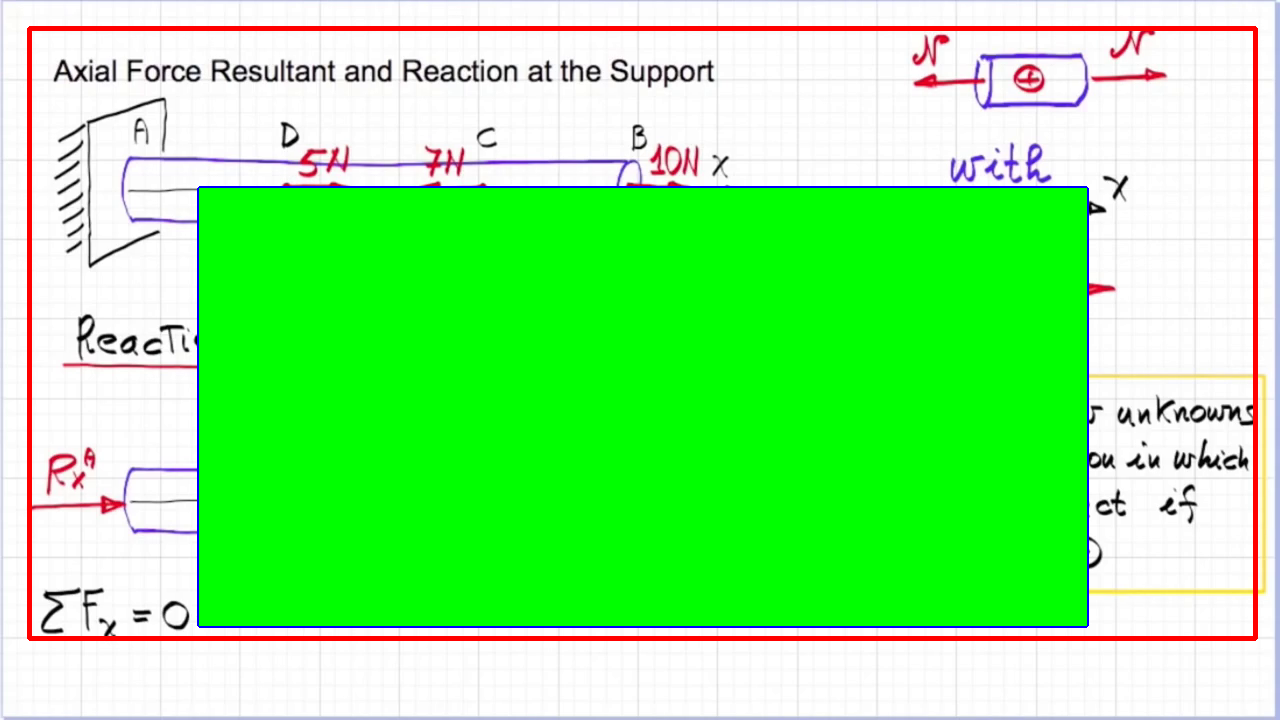 Axial Force Resultant and Reaction at the Support
N N
A D 5N 7N C B 10N x
with
x
unknowns
in which
Rx^A
if
ΣFx = 0